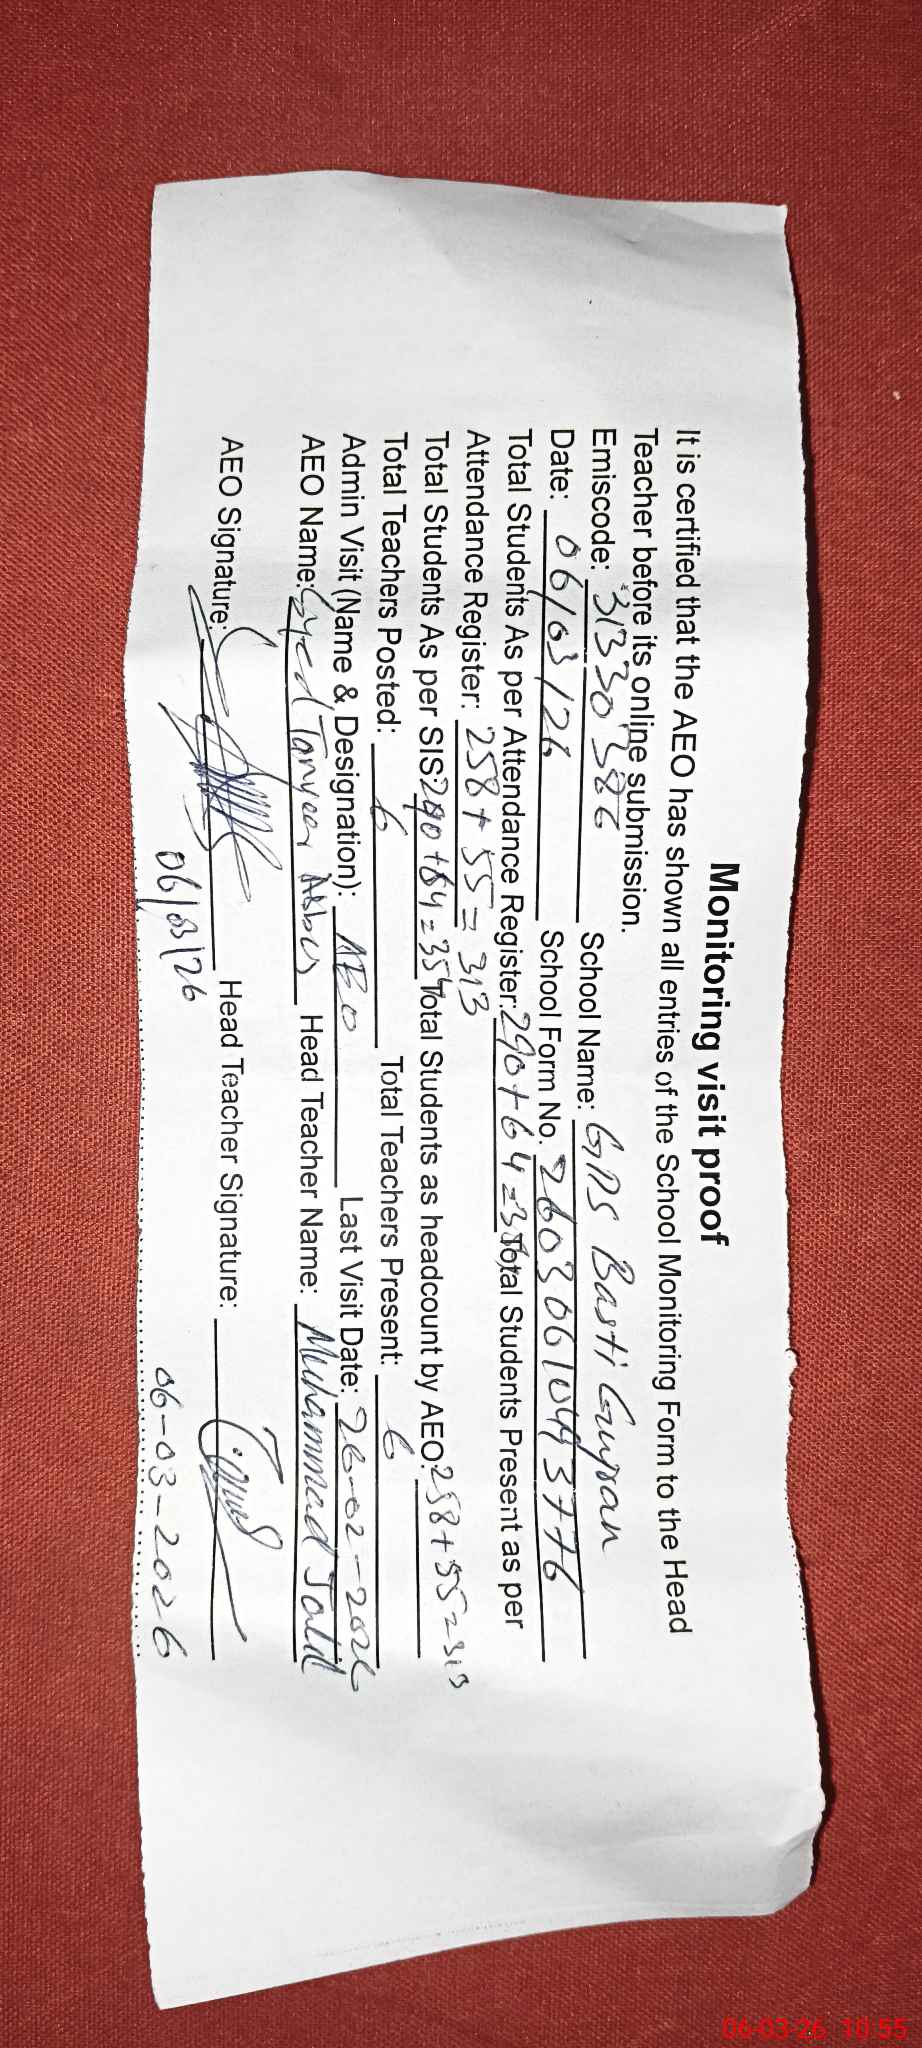 Monitoring visit proof
It is certified that the AEO has shown all entries of the School Monitoring Form to the Head
Teacher before its online submission.
Emiscode: 31330386 School Name: GPS Basti Gujran
Date: 06/03/26 School Form No. 26030610443776
Total Students As per Attendance Register: 290+64=354 Total Students Present as per
Attendance Register: 258+55=313
Total Students As per SIS: 290+64=354 Total Students as headcount by AEO: 258+55=313
Total Teachers Posted: 6 Total Teachers Present: 6
Admin Visit (Name & Designation): AEO Last Visit Date: 26-02-2026
AEO Name: Syed Tanveer Abbas Head Teacher Name: Muhammad Jalil
AEO Signature: Head Teacher Signature:
06/03/26 06-03-2026
06-03-26 10:55